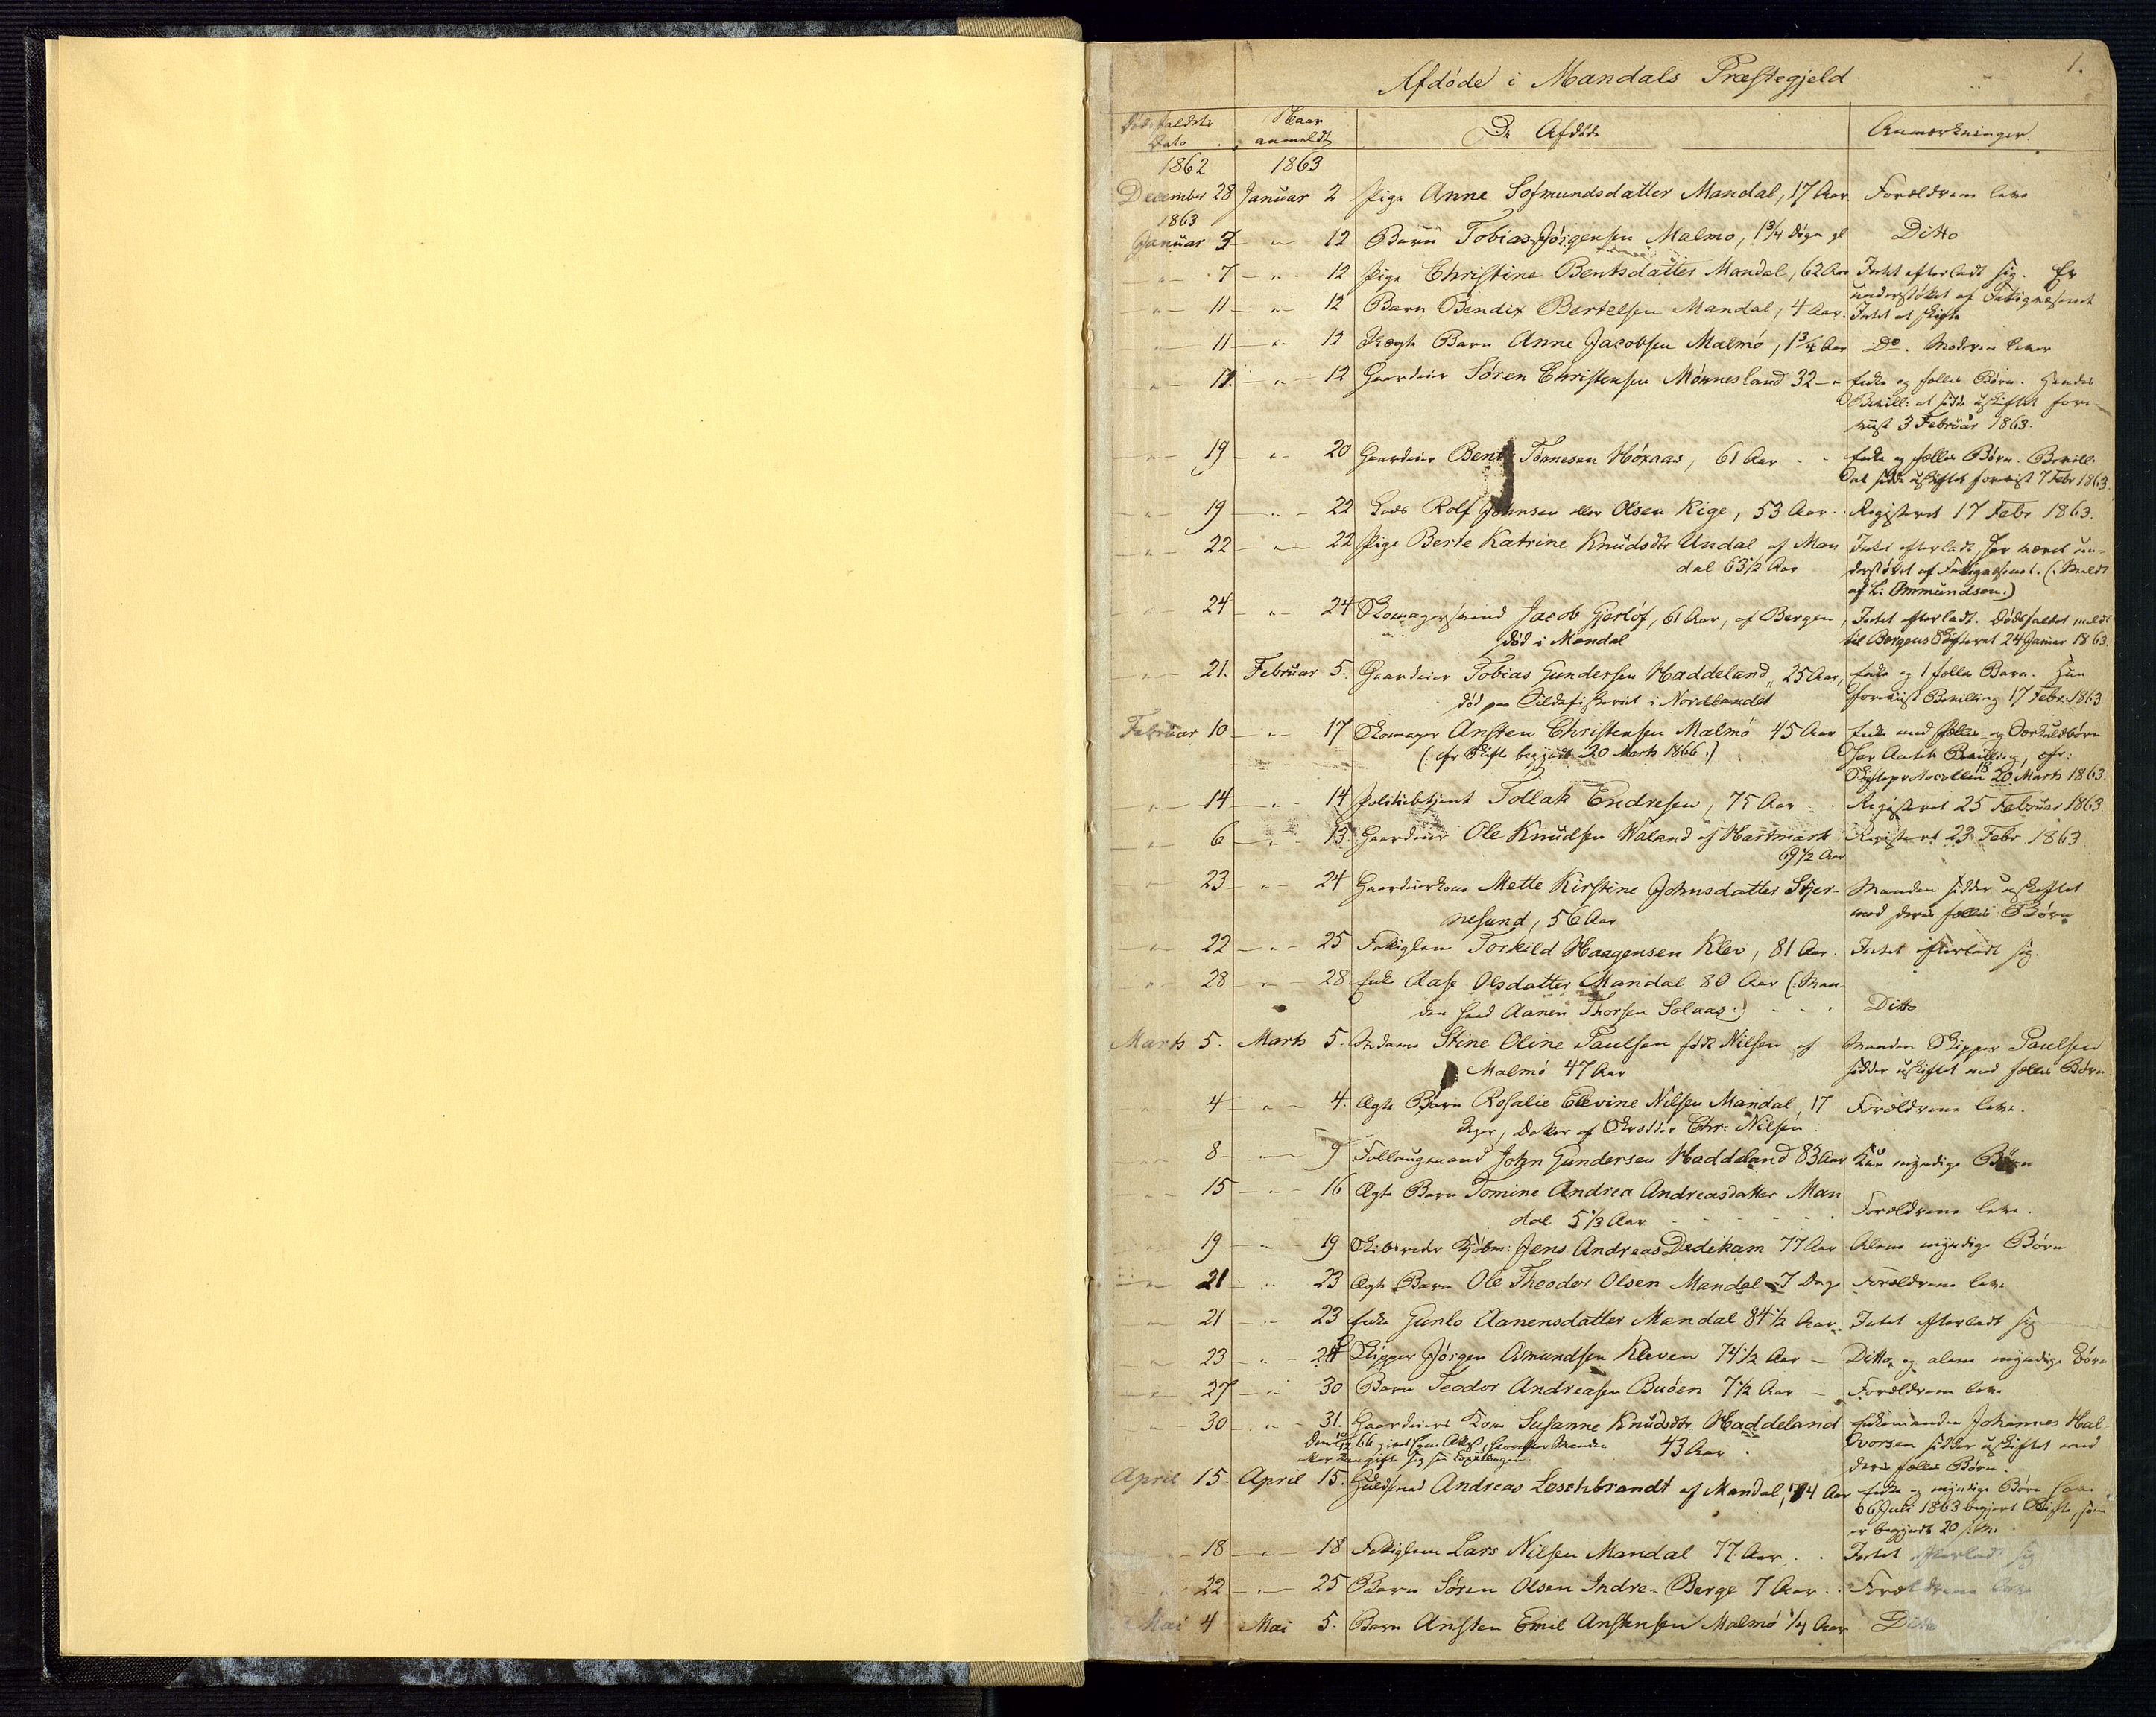 1.
Afdøde i Mandals Præstegjeld
Dødsfaldets Dato Naar anmeldt De Afdøde Anmærkninger.
1862 1863
December 28 Januar 2 Pige Anne Sofmundsdatter Mandal, 17 Aar. Forældrene leve
1863
Januar 3 — " — 12 Barn Tobias Jørgensen Malmø, 1 3/4 Døgn gl Ditto
— " — 7 — " — 12 Pige Christine Bentsdatter Mandal, 62 Aar Intet efterladt sig. Er
understøttet af Fattigvæsenet
— " — 11 — " — 12 Barn Bendix Bertelsen Mandal, 4 Aar. Intet at skifte
— " — 11 — " — 12 Uægte Barn Anne Jacobsen Malmø, 1 3/4 Aar Do. Moderen lever
— " — 11. — " — 12 Gaardeier Søren Christensen Mønnesland 32 — " Enke og fælles Børn. Hendes
Bevill: at sidde uskiftet fore-
viist 3 Februar 1863.
— " — 19 — " — 20 Gaardeier Bent Tønnesen Høxaas, 61 Aar - - Enke og fælles Børn. Bevill:
at sidde uskiftet forevist 7 Febr 1863.
— " — 19 — " — 22 Lods Rolf Johnsen eller Olsen Rige, 53 Aar - Registeret 17 Febr 1863.
— " — 22 — " — 22 Pige Berte Katrine Knudsdtr Undal af Man Intet efterladt, har været un-
dal 63 1/2 Aar derstøttet af Fattigvæsenet. (: Meldt
af L: Ommundsen.)
— " — 24 — " — 24 Skomagersvend Jacob Gjerløf, 61 Aar, af Bergen, Intet efterladt. Dødsfaldet meldt
død i Mandal til Bergens Skifteret 24 Januar 1863.
— " — 21. Februar 5. Gaardeier Tobias Gundersen Haddeland, 25 Aar, Enke og 1 fælles Barn. Hun
død paa Sildefiskeriet i Nordlandet foreviist Bevilling 17 Febr. 1863
Februar 10 — " — 17 Skomager Ansten Christensen Malmø 45 Aar Enke med fælles- og Særkuldbørn
(: cfr Skifte begyndt 20 Marts 1866.) Har Bevilling, cfr:
Skifteprotocollen 18 20 Marts 1863.
— " — 14 — " — 14 Politibetjent Tollak Endresen, 75 Aar - - Registeret 25 Februar 1863
— " — 6 — " — 13. Gaardeier Ole Knudsen Waland af Hartmark Registeret 23 Febr 1863
69 1/2 Aar
— " — 23 — " — 24 Gaardeierkone Mette Kirstine Johnsdatter Stjer- Manden sidder uskiftet
nesund, 56 Aar med deres fælles Børn
— " — 22 — " — 25 Fattiglem Torkild Haagensen Klev, 81 Aar. Intet efterladt sig.
— " — 28 — " — 28 Enke Aase Olsdatter Mandal 80 Aar (: Man-
den hed Aanen Thorsen Solaas:) - - - Ditto
Marts 5. Marts 5. Madame Stine Oline Paulsen født Nilsen af Manden Skipper Paulsen
Malmø 47 Aar sidder uskiftet med fælles Børn
4 — " — 4. Ægte Barn Rosalie Elevine Nilsen Mandal, 17 Forældrene leve.
Uger, Datter af Chr: Nilsen
8 — — 9 Follaugsmand John Gundersen Haddeland 83 Aar Kun myndige Børn
15 — " — 16 Ægte Barn Tomine Andrea Andreasdatter Man
dal 5 1/3 Aar - - - - Forældrene leve.
19 — " — 19 Skibsreder Kjøbm: Jens Andreas Dedekam 77 Aar Alene myndige Børn
— " — 21 — " — 23 Ægte Barn Ole Theodor Olsen Mandal 7 Dage Forældrene leve
— " — 21 — " — 23 Enke Gunlo Aanensdatter Mandal 84 1/2 Aar. Intet efterladt sig
— " — 23 — " — 24 Skipper Jørgen Asmundsen Kleven 74 1/2 Aar — Ditto, og alene myndige Børn
— " — 27 — " — 30 Barn Teodor Andreasen Buøen 7 1/2 Aar — Forældrene leve
— " — 30 — " — 31. Gaardeiers Kone Susanne Knudsdtr Haddeland Enkemanden Johannes Hal
43 Aar. vorsen sidder uskiftet med
deres fælles Børn.
April 15. April 15. Guldsmed Andreas Loschbrandt af Mandal, 74 Aar Enke og myndige Børn have
6 Juli 1863 begjært Skifte, som
er begyndt 20 s: M.
— " — 18 — " — 18 Fattiglem Lars Nilsen Mandal 77 Aar. . Intet efterladt sig
— " — 22 — " — 25 Barn Søren Olsen Indre-Berge 7 Aar. . Forældrene leve
Mai 4 Mai 5. Barn Ansten Emil Anstensen Malmø 1/4 Aar Ditto